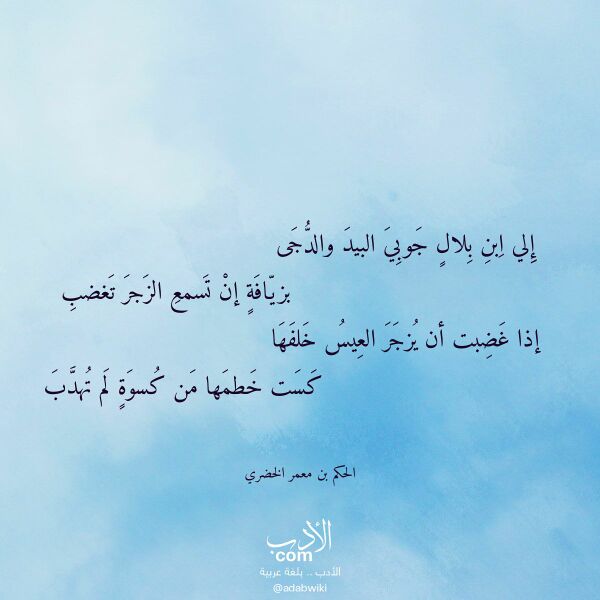 إِلي اِبنِ بِلالٍ جَوبِيَ البيدَ والدُّجَى
بزيّافَةٍ إنْ تَسمعِ الزَجرَ تَغضبِ
إذا غَضِبت أن يُزجَرَ العِيسُ خَلفَهَا
كَسَت خَطمَها مَن كُسوَةٍ لَم تُهدَّبَ
الحكم بن معمر الخضري
الأدب
com
الأدب .. بلغة عربية
@adabwiki